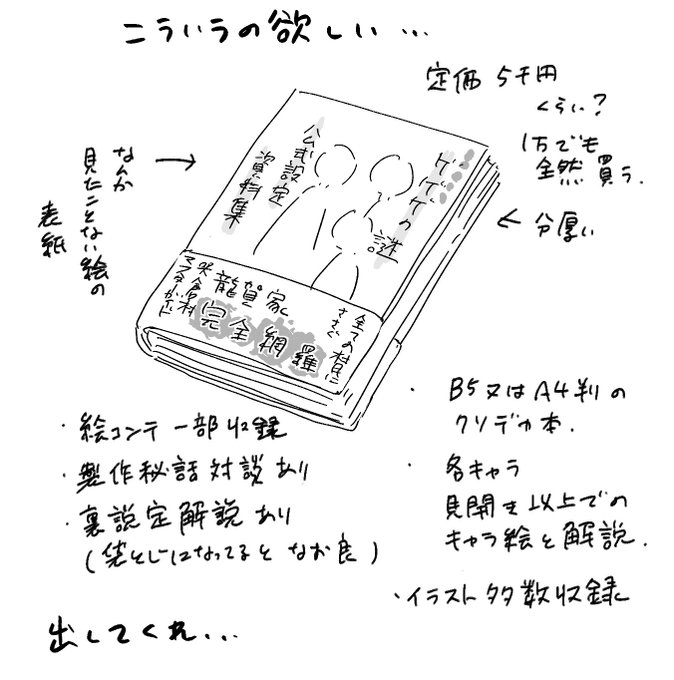 こういうの欲しい…
定価 5千円
くらい?
1万でも
全然買う.
分厚い
なんか
見たことない絵の
表紙
ゲゲゲの謎
公式設定
資料集
全ての村民に
ささぐ
龍賀家
完全網羅
・絵コンテ一部収録
・製作秘話対談あり
・裏設定解説あり
(袋とじになってるとなお良)
・B5又はA4判の
クソデカ本.
・各キャラ
見開き以上での
キャラ絵と解説.
・イラスト多数収録
出してくれ…